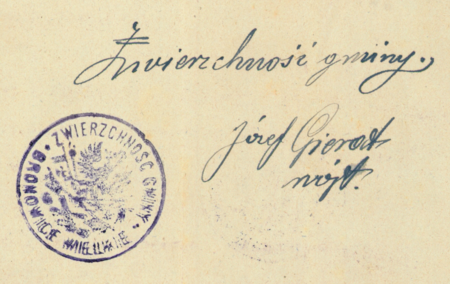 Zwierzchność gminy.,
Józef Gierat
wójt.
ZWIERZCHNOŚĆ GMINY
BRONOWICE WIELKIE